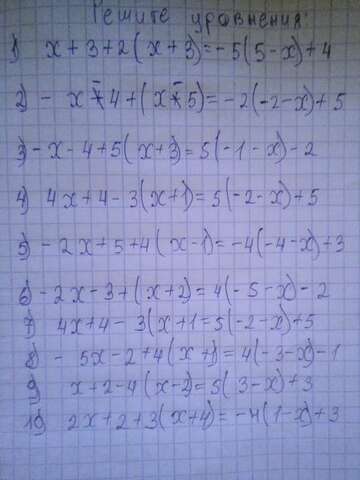 Решите уравнения:
1) x+3+2(x+3)=-5(5-x)+4
2) - x-4+(x-5)=-2(-2-x)+5
3) -x-4+5(x+3)=5(-1-x)-2
4) 4x+4-3(x+1)=5(-2-x)+5
5) -2x+5+4(x-1)=-4(-4-x)+3
6) -2x-3+(x+2)=4(-5-x)-2
7) 4x+4-3(x+1=5(-2-x)+5
8) - 5x-2+4(x+1)=4(-3-x)-1
9) x+2-4(x-2)=5(3-x)+3
10) 2x+2+3(x+4)=-4(1-x)+3